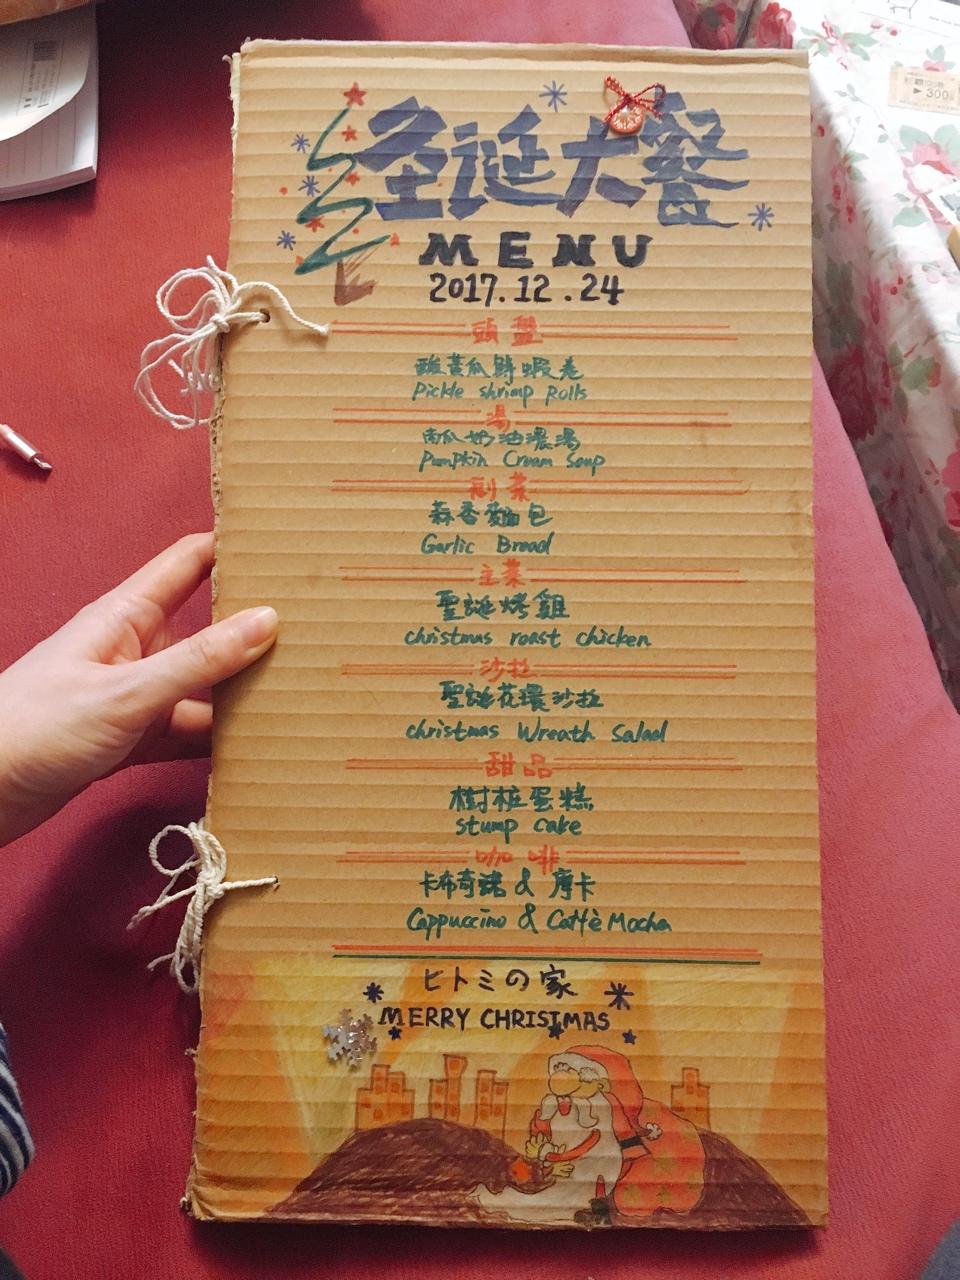 圣诞大餐
MENU
2017.12.24
頭盤
酸黃瓜鮮蝦卷
Pickle shrimp Rolls
湯
南瓜奶油濃湯
Pumpkin Cream Soup
副菜
蒜香麵包
Garlic Bread
主菜
聖誕烤雞
christmas roast chicken
沙拉
聖誕花環沙拉
christmas Wreath Salad
甜品
樹桩蛋糕
stump cake
咖啡
卡布奇諾 & 摩卡
Cappuccino & Caffè Mocha
ヒトミの家
MERRY CHRISTMAS
300